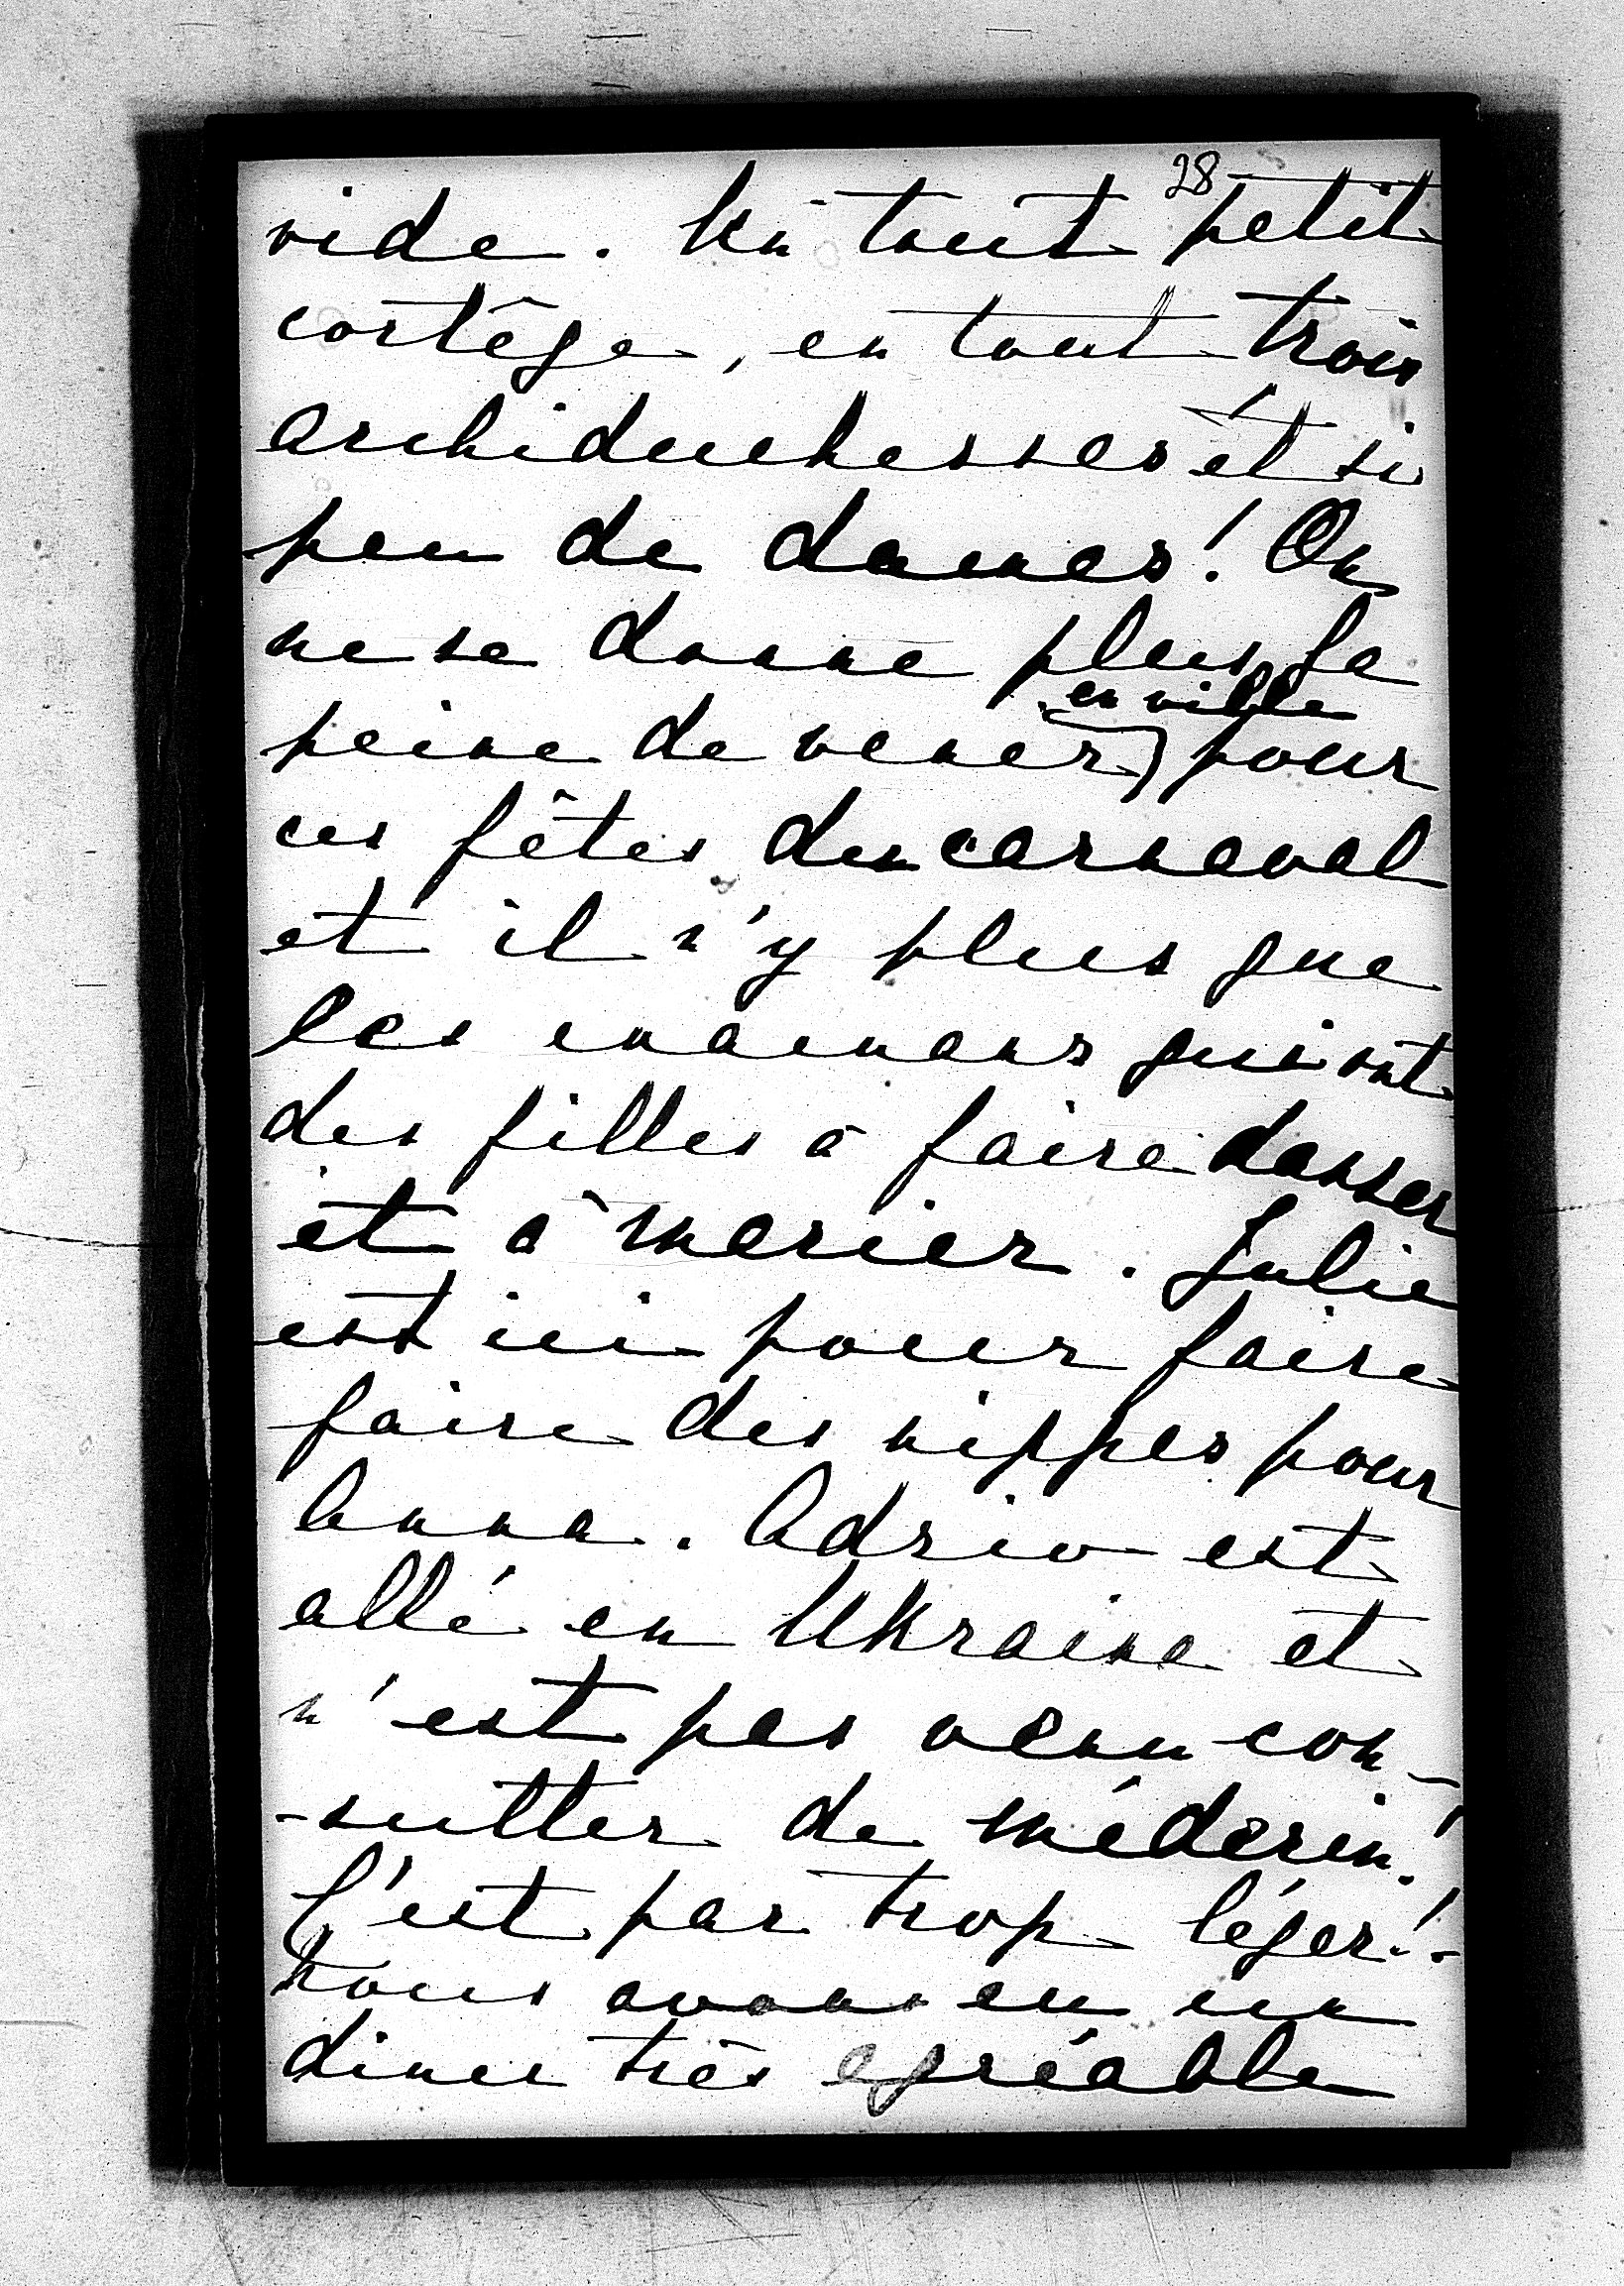 28
vide. Un tout petit
cortège, en tout trois
archiduchesses et si
peu de dames! On
ne se donne plus la
en ville
peine de vener pour
ces fêtes du carnaval
et il n'y plus que
les mamans qui ont
des filles à faire danser
et à marier. Julie
est ici pour faire
faire des nippes pour
Anna. Adrio est
allé en Ukraine et
n'est pas venu con-
-sulter de médecin!
C'est par trop léger! -
Nous avons eu un
diner très agréable